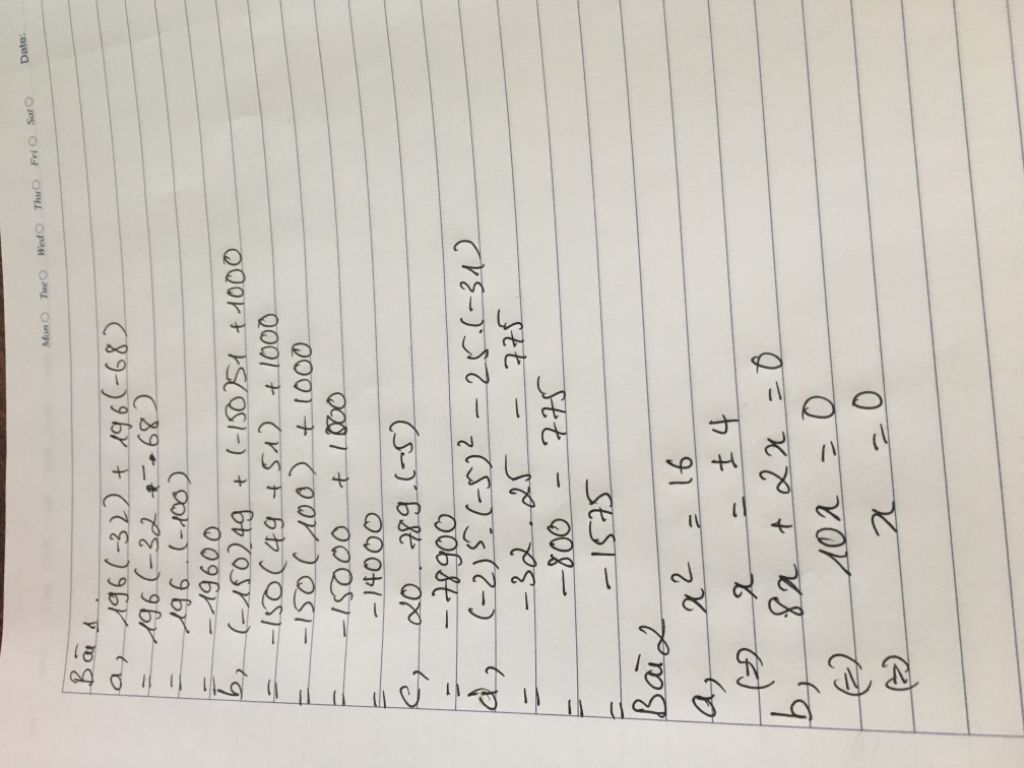 Mon Tue Wed Thu Fri Sat Date:
Bài 1
a, 196(-32) + 196(-68)
= 196(-32 + -68)
= 196.(-100)
= -19600
b, (-150)49 + (-150)51 + 1000
= -150(49 + 51) + 1000
= -150(100) + 1000
= -15000 + 1000
= -14000
c, 20.789.(-5)
= -78900
d, (-2)5.(-5)² - 25.(-31)
= -32.25 - 775
= -800 - 775
= -1575
Bài 2
a, x² = 16
(=) x = ±4
b, 8x + 2x = 0
(=) 10x = 0
(=) x = 0